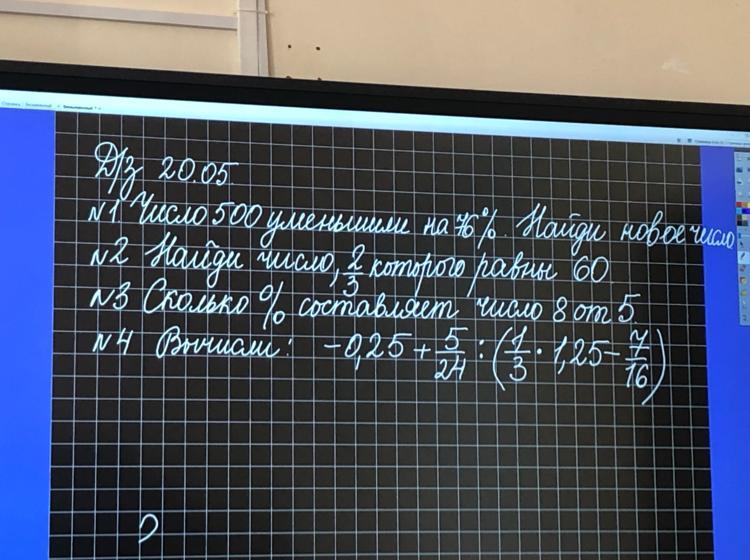 Д/з 20.05.
№1 Число 500 уменьшили на 76%. Найди новое число
№2 Найди число, 2/3 которого равны 60
№3 Сколько % составляет число 8 от 5
№4 Вычисли: -0,25 + 5/24 : (1/3 · 1,25 - 7/16)